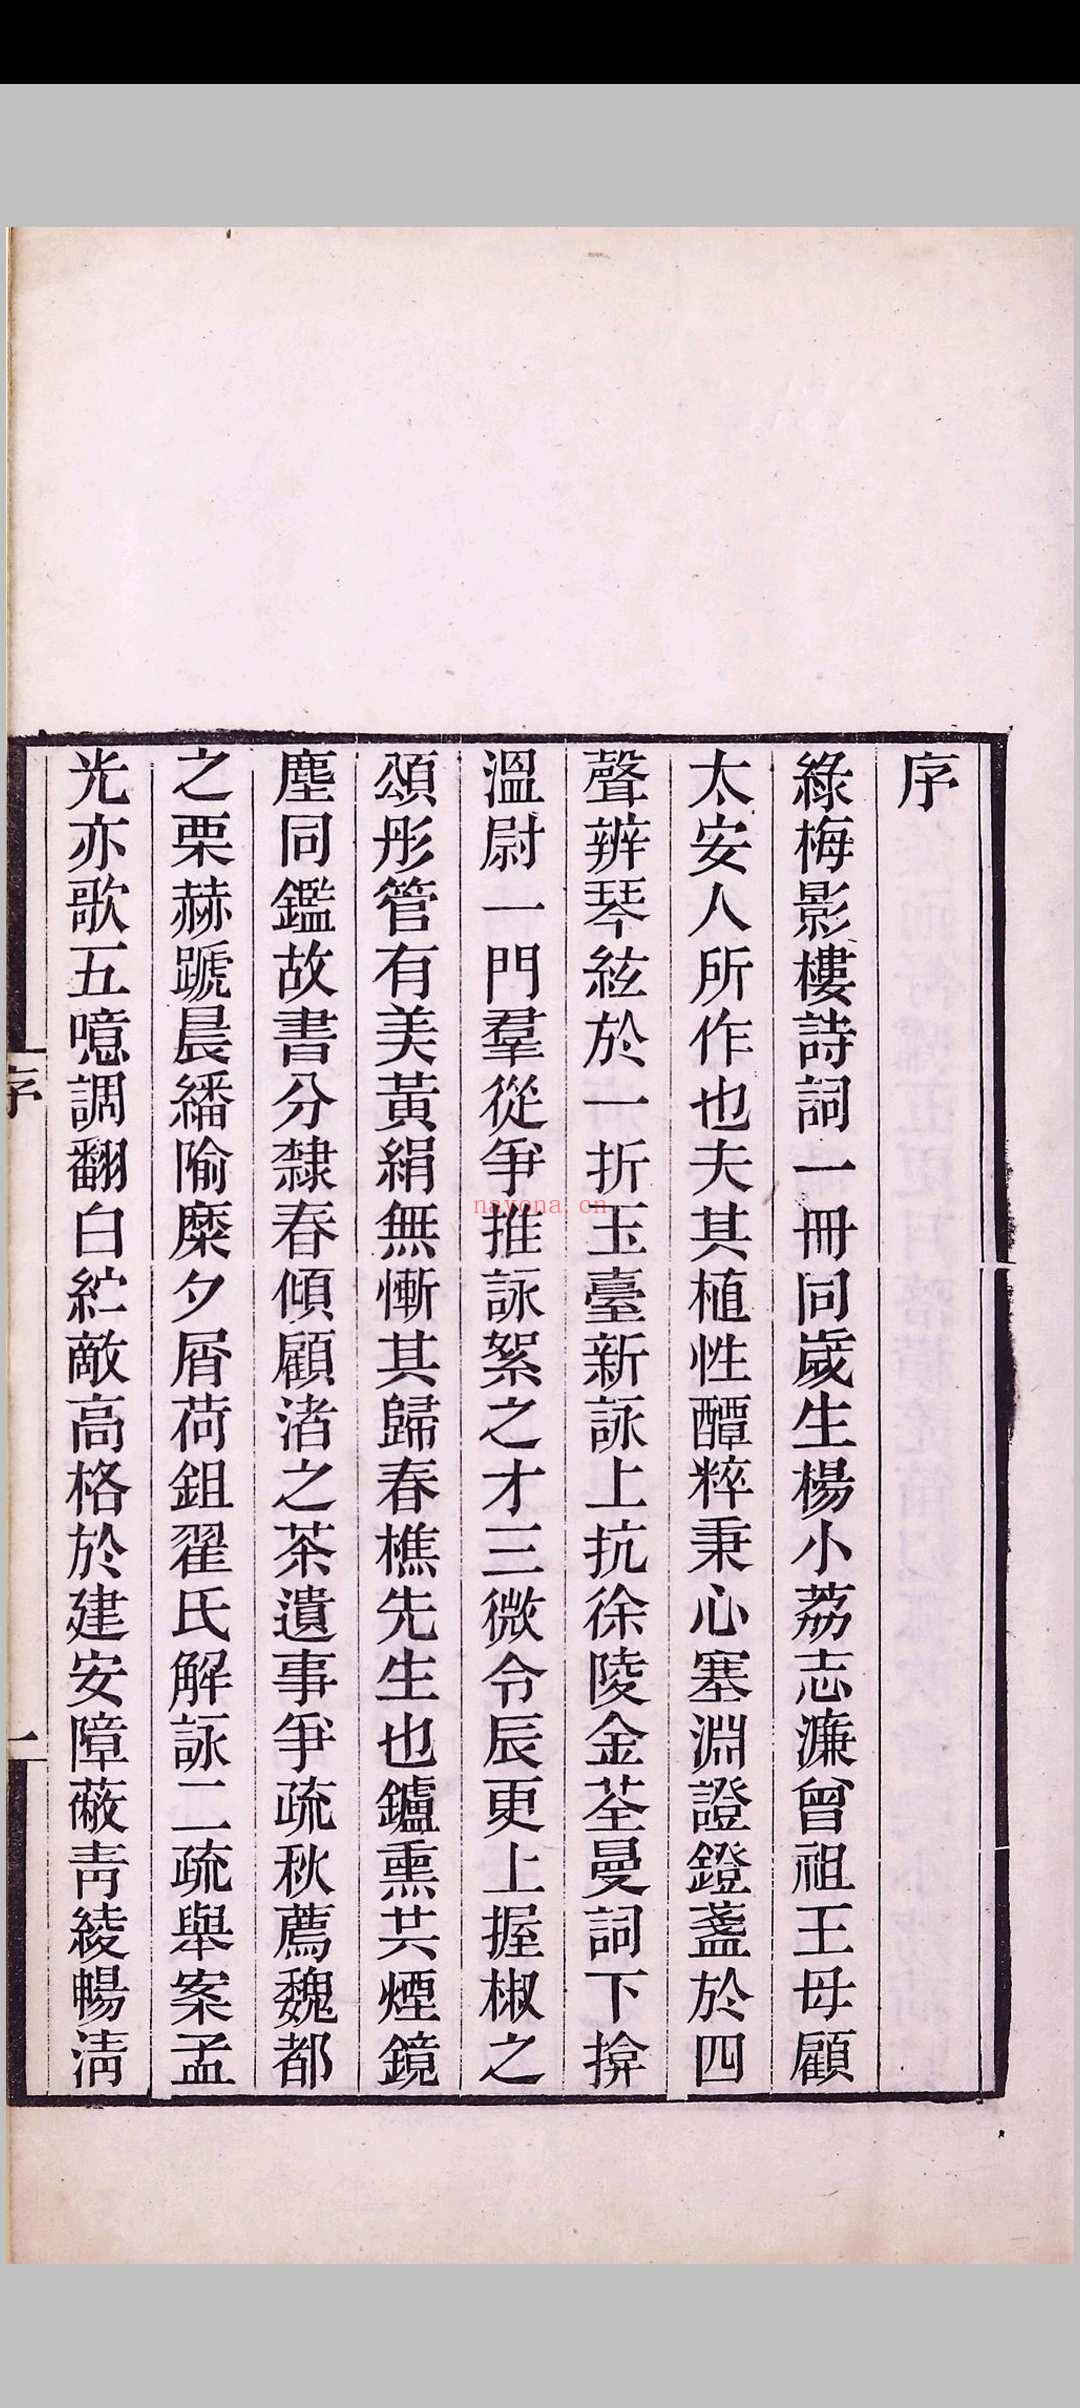 序
綠梅影樓詩詞一冊同歲生楊小荔志濂曾祖王母顧
太安人所作也夫其植性醰粹秉心塞淵證鐙盞於四
聲辨琴絃於一折玉臺新詠上抗徐陵金荃曼詞下揜
溫尉一門羣從爭推詠絮之才三微令辰更上握椒之
頌彤管有美黃絹無慚其歸春樵先生也鑪熏共煙鏡
塵同鑑故書分隸春傾顧渚之茶遺事爭疏秋薦魏都
之栗赫蹏晨繙隃糜夕屑荷鉏翟氏解詠二疏舉案孟
光亦歌五噫調翻白紵敵高格於建安障蔽青綾暢清
序
一
nayona.cn